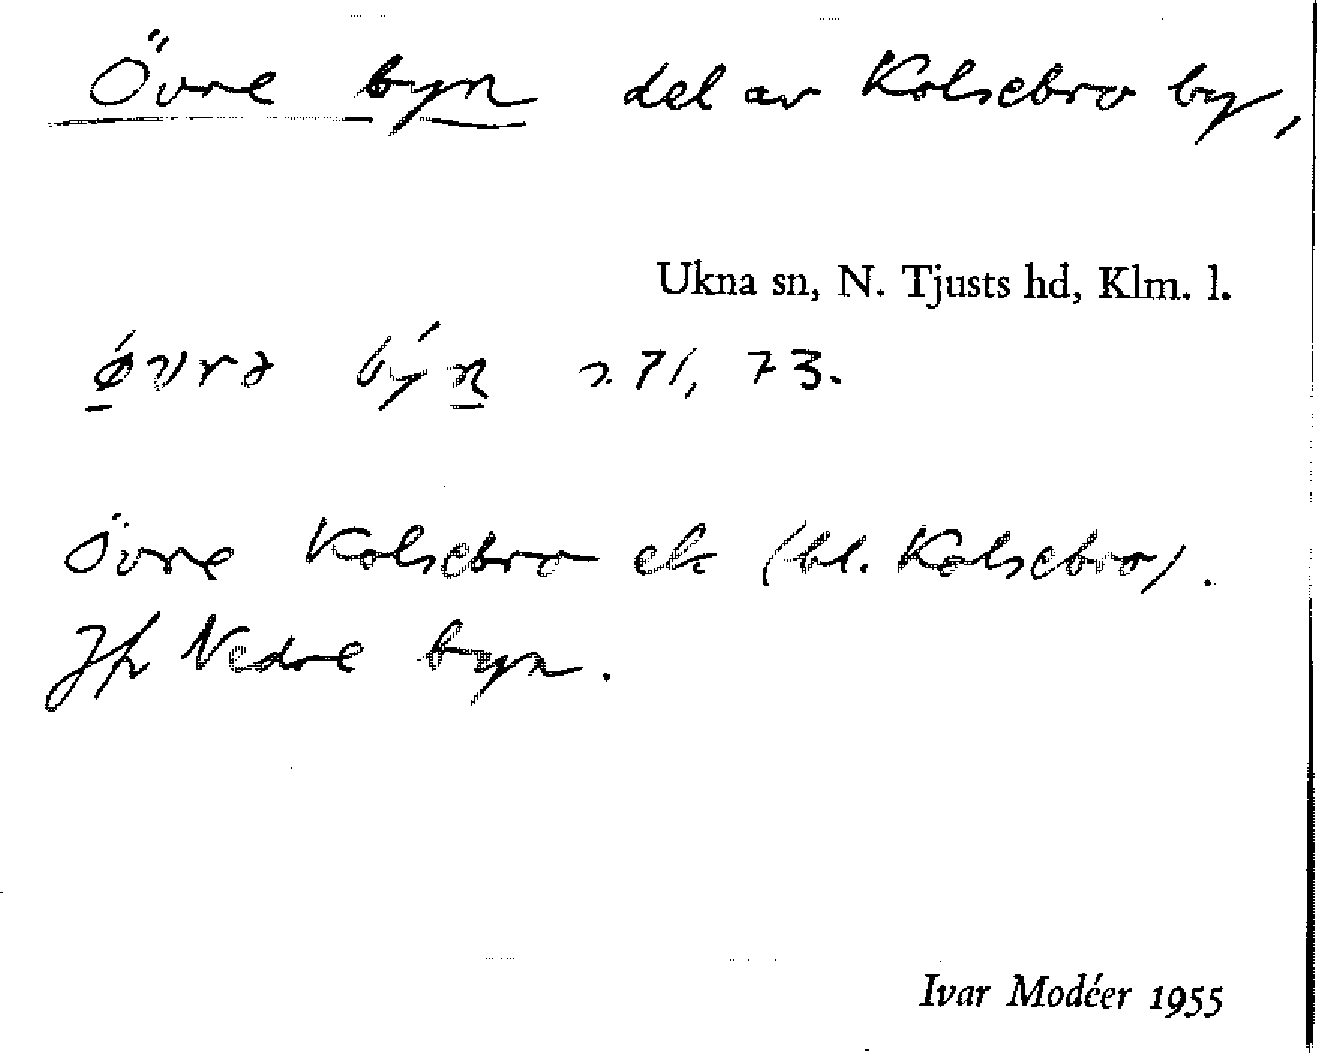 Övre byn del av Kolsebro by,
Ukna sn, N. Tjusts hd, Klm. l.
byn 271, 73.
Övre Kolsebro ek (bl. Kolsebro).
Jfr Nedre byn.
Ivar Modéer 1955